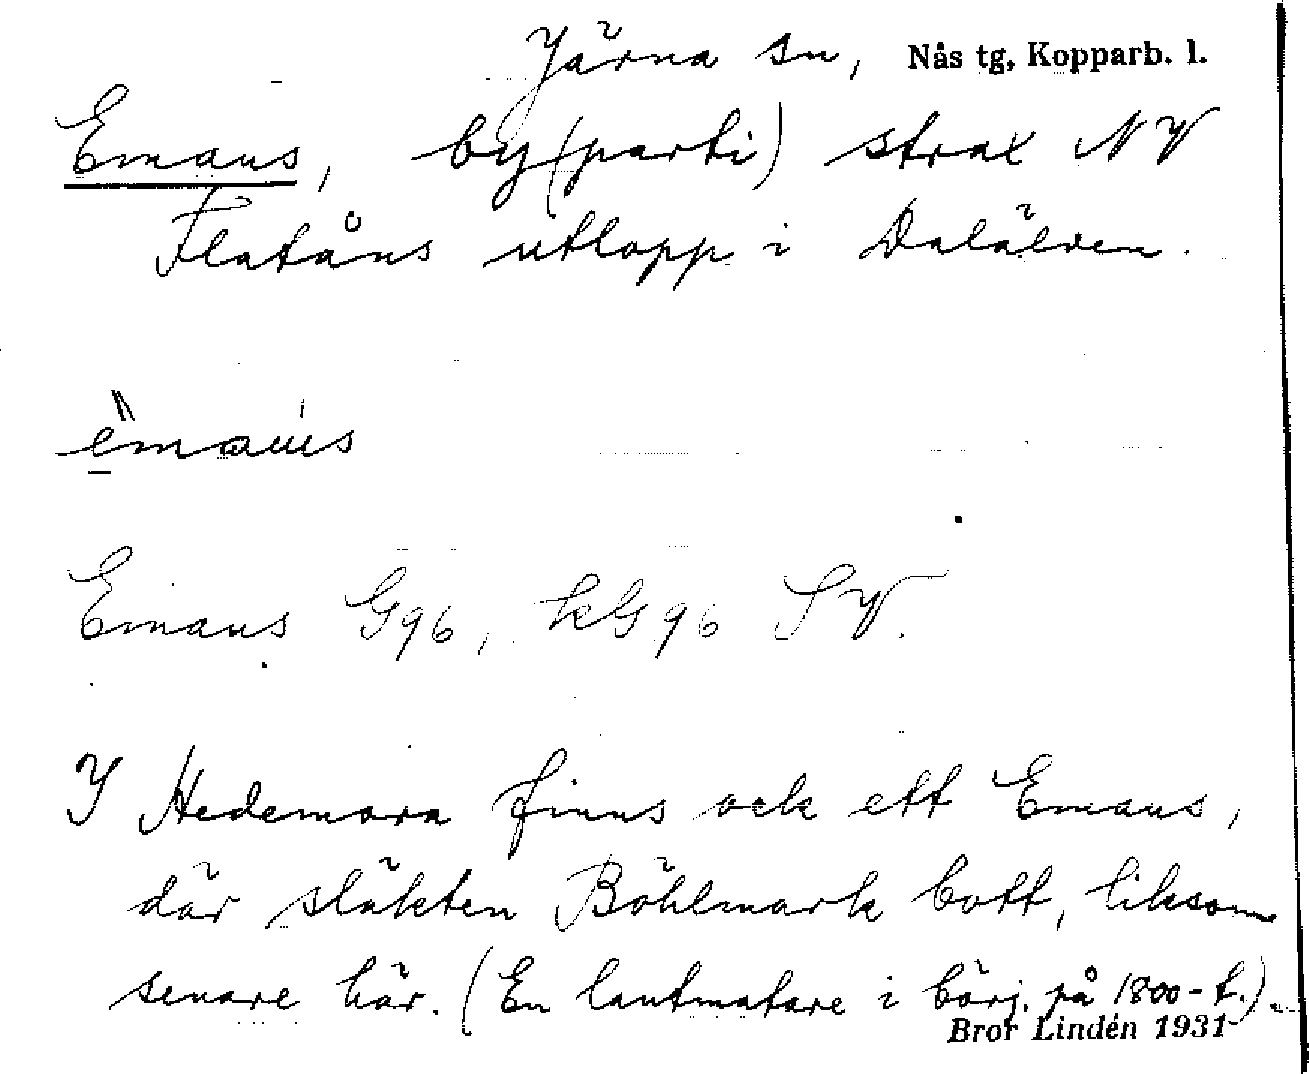 Järna sn, Nås tg, Kopparb. l.
Emaus, by(parti) strax NV
Flatåns utlopp i Dalälven.
Emaus G96, kG96 SV.
I Hedemora finns ock ett Emaus,
där släkten Böhlmark bott, liksom
senare här. (En lantmätare i börj. på 1800-t.).
Bror Lindén 1931